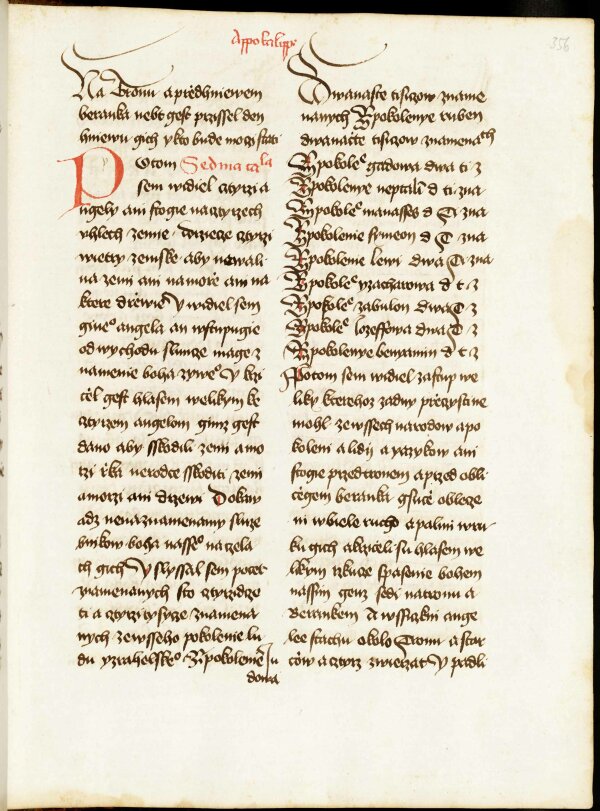 Appokalipps
356
Na Tronu a przedhniewem
beranka nebt gest przissel den
hniewu gich y kto bude mozi stati
Potom Sedma ca la
sem widiel cztyrzi a
ngely ani stogie na cztyrzech
vhlech zemie drziecze cztyrzi
wietry zemske aby newali
na zemi ani na morze ani na
ktere drzewie Y widiel sem
gineº angela an wstupugie
od wychodu slunze mage z
namenie boha zyweº Y krzi
czel gest hlasem welikym ke
cztyrzem angelom gimz gest
dano aby sskodili zemi a mo
rzi rzka nerodce sskoditi zemi
a morzi ani drzewi Dokaw
adz nenaznamenamy sluze
bnikow boha nasseº na czela
ch gich Y slyssal sem poczet
znamenanych sto cztyrzidze
ti a cztyrzi tysyze znamena
nych ze wsseho pokolenie lu
du yzrahelskeº Z pokolenie Ju
dowa
Dwanaste tisizow zname
nanych Z pokolenye ruben
dwanacte tisizow znamenach
Z pokoleᵉ gadowa dwa ti z
Z pokolenye neptali d ti zna
Z pokoleᵉ manasses d T zna
Z pokolenie symeon d T zna
Z pokolenie lewi dwa T zna
Z pokoleᵉ yzacharowa d t z
Z pokoleᵉ zabulon dwa T z
Z pokoleᵉ Jozeffowa dwa T z
Z pokolenye benyamin d t z
Potom sem widiel zastup we
liky kterehoz zadny przeczystine
mohl ze wssech narodow a po
koleni a lidij a yazykow ani
stogie przed tronem a przed obli
czegem beranka gsuce oblecze
ni w biele rucho a palmi w ru
ku gich a krziczeli su hlasem we
likym rzkuze spasenie bohem
nassim genz sedi na tronu a
Berankem A wssiczkni ange
lee stachu okolo Tronu a star
czow a cztyrz zwierzat Y padli